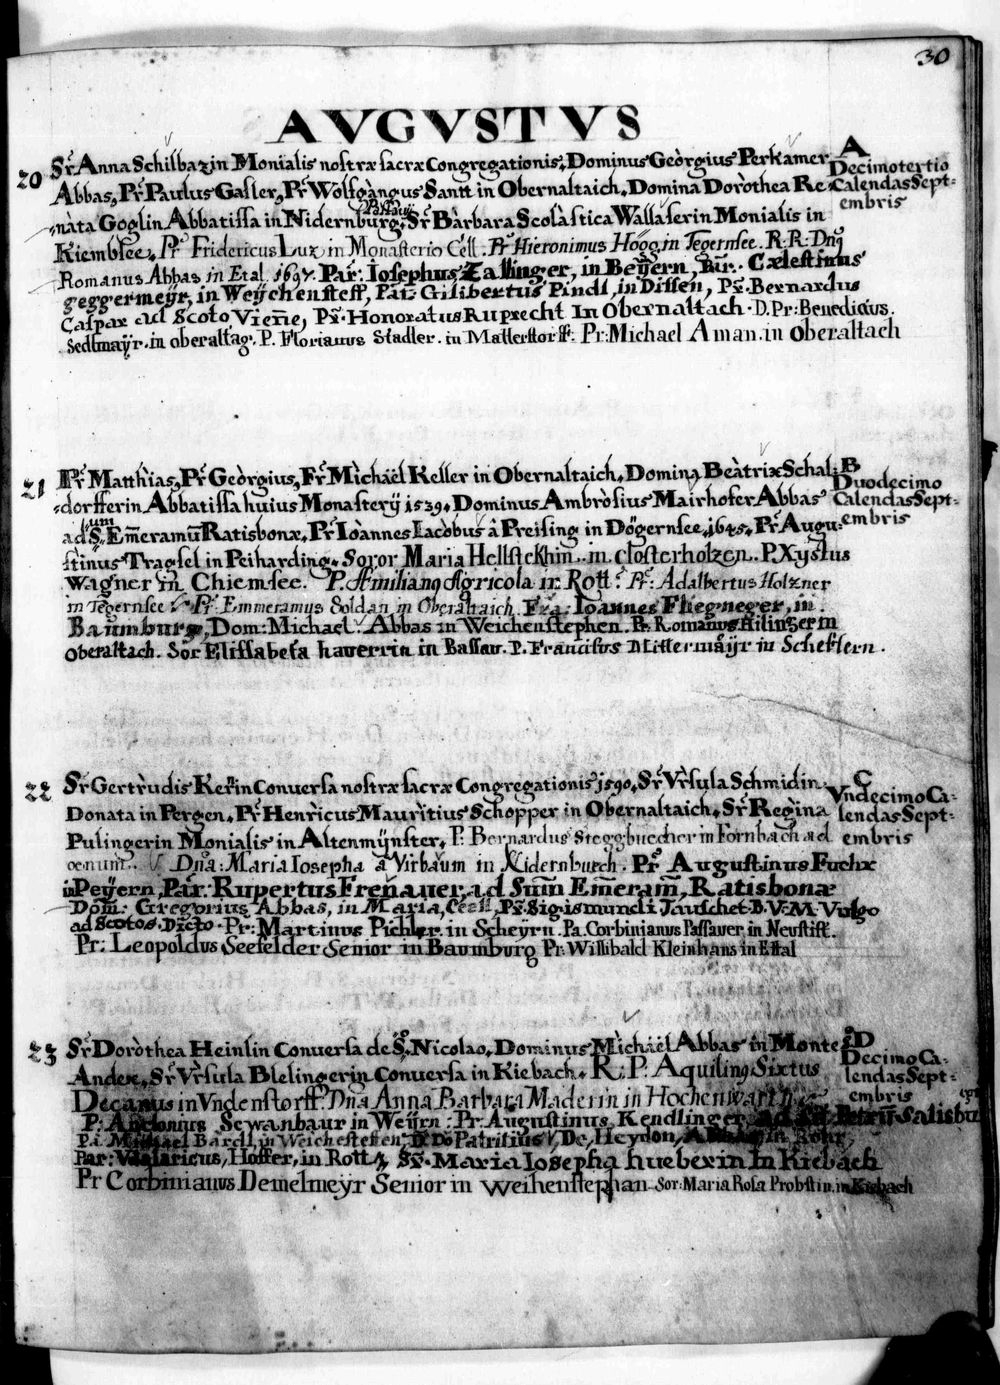 30
AVGVSTVS
20 Sr Anna Schilbazin Monialis nostræ sacræ Congregationis, Dominus Geòrgius Perkamer
Abbas, Pr Paulus Gasler, Pr Wolfgangus Santt in Obernaltaich, Domina Dorothea Re-
nàta Goglin Abbatissa in Nidernburg Passavii, Sr Bàrbara Scolastica Wallaserin Monialis in
Kiembsee, Pr Fridericus Luz in Monasterio Cell. Pr Hieronimus Högg in Tegernsee. R: R: Dnq
Romanus Abbas in Etal 1697. Par: Iosephus Zallinger, in Beÿern, Cælestinus
geggermeÿr, in Weÿchensteff, Par: Gilibertus Pindl, in Dissen, Pr. Bernardus
Caspar ad Scoto Vieñe, Pr. Honoratus Ruprecht In Obernaltach. D. Pr: Benedictus.
Sedlmaÿr. in oberaltag. P. Florianus Stadler. in Mallerstorff. Pr: Michael Aman. in Oberaltach
A
Decimotertio
Calendas Sept-
embris
21 Pr Matthias, Pr Geòrgius, Fr Michäel Keller in Obernaltaich, Domina Beàtrix Schal-
dorfferin Abbatissa huius Monasterÿ 1539. Dominus Ambròsius Mairhofer Abbas
ad S. Em̃eramum Ratisbonæ, Pr Ioànnes Iacòbus à Preising in Dögernsee 1645, Pr Augu-
stinus Tragsel in Peiharding, Soror Maria Hellstekhin.. in closterholzen.. P. Xystus
Wagner in Chiemsee. P. Æmilianq Agricola in Rott. Pr: Adalbertus Holzner
in Tegernsee Pr: Emmeramus Soldan in Oberaltaich. Fra: Ioannes Fliegneger, in
Baumburg, Dom: Michael. Abbas in Weichenstephen. Pr. Romanus Hilinger in
Oberaltach. Sor Elissabeta haverrin in Bassau. P. Franciscus Mittermaÿr in Scheftlern.
B
Duodecimo
Calendas Sept-
embris
22 Sr Gertrùdis Kerin Conversa nostræ sacræ Congregationis 1590, Sr Vrsula Schmidin
Donata in Pergen, Pr Henrìcus Mauritius Schopper in Obernaltaich, Sr Regina
Pulingerin Monialis in Altenmÿnster, P. Bernardus Steggbuecher in Fornbach ad
oenum.. Dña: Maria Iosepha à Virbaum in Nidernbuech. Pr. Augustinus Fuchx
in Peÿern, Par: Rupertus Frenauer, ad Sum̃ Emeram̃, Ratisbonæ
Dom̃: Gregorius Abbas, in Maria, Cell, Pr. Sigismundi Jauschet. B. V. M. Vulgo
ad Scotos. Dicto. Pr: Martinus Pichler. in Scheyrn. Pa. Corbinianus Passauer. in Neustift.
Pr: Leopoldus Seefelder Senior in Baumburg Pr: Willibald Kleinhans in Ettal
C
Vndecimo Ca-
lendas Sept-
embris
23 Sr Doròthea Heinlin Conversa de S. Nicolao, Dominus Michäel Abbas in Monte S.
Andex, Sr Vrsula Blelingerin Conversa in Kiebach. R: P: Aquilinq Sixtus
Decanus in Vndenstorff. Dña Anna Barbara Maderin in Hochenwarth
P: Antonius Sewanbaur in Weÿrn: Pr: Augustinus Kendlinger ad St. Petrum Salisbu
Pa. Michael Bardl, in Weichesteffen, Patritius, De, Heydon, Abbas in Rohr,
Par: Hoffer, in Rott, Sr. Maria Iosepha hueberin In Kiebach
Pr Corbinianus Demelmeyr Senior in Weihenstephan Sor: Maria Rosa Probstin. in Kiebach
D
Decimo Ca-
lendas Sept-
embris